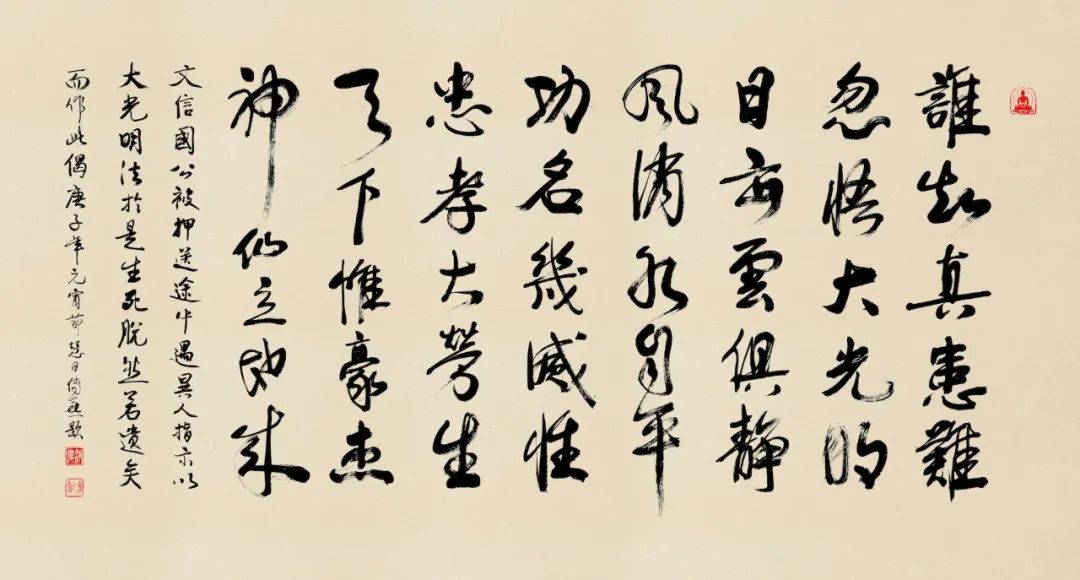 誰知真患難
忽悟大光明
日出雲俱靜
風消水自平
功名幾滅性
忠孝大勞生
天下惟豪杰
神仙立地成
文信國公被押送途中遇異人指示以
大光明法於是生死脫然若遺矣
而作此偈庚子年元宵節慧日傳題